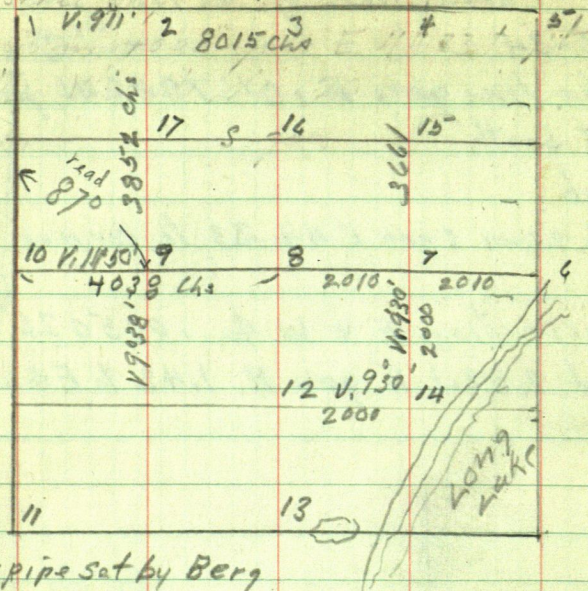 1 V.9°11' 2 3 4 5
8015 chs
3852 chs
17 S 14 15
3661
read
870
10 V.11°50' 9 8 7 6
4038 Chs 2010 2010
V9°38' Vn.9°30'
2000
12 V.9°30' 14
2000
Long
Lake
11 13
pipe set by Berg